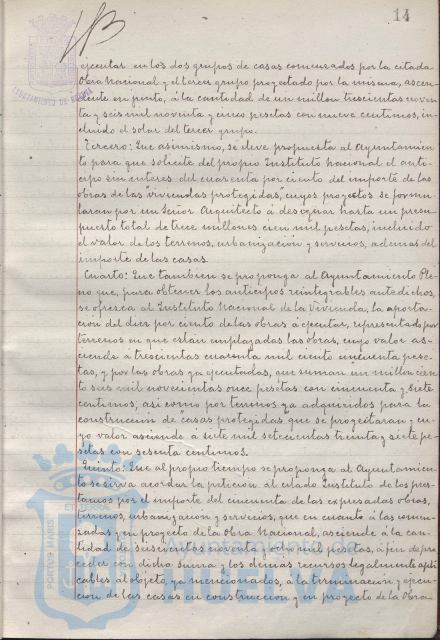 14
ejecutar en los dos grupos de casas comenzados por la citada
Obra Nacional y el tercer grupo proyectado por la misma, ascen-
dente en junto, á la cantidad de un millon trescientas noven-
ta y seis mil noventa y cinco pesetas con nueve centimos, in-
cluido el solar del tercer grupo.
Tercero: Que asimismo, se eleve propuesta al Ayuntamien-
to para que solicite del propio Instituto Nacional el anti-
cipo sin interes del cuarenta por ciento del importe de las
obras de las "viviendas protegidas", cuyos proyectos se formu-
laran por un Señor Arquitecto á designar hasta un presu-
puesto total de trece millones cien mil pesetas, incluido
el valor de los terrenos, urbanización y servicios, ademas del
importe de las casas.
Cuarto: Que tambien se proponga al Ayuntamiento Ple-
no que, para obtener los anticipos reintegrables antedichos,
se ofrezca al Instituto Nacional de la Vivienda, la aporta-
ción del diez por ciento de las obras á ejecutar, representado por
terrenos en que están emplazadas las obras, cuyo valor as-
ciende á trescientas cuarenta mil ciento cincuenta pese-
tas, y por las obras ya ejecutadas, que suman un millon cien-
to seis mil novecientas once pesetas con cincuenta y siete
centimos; asi como por terrenos ya adquiridos para la
construcción de "casas protegidas" que se proyectaran y cu-
yo valor asciende a siete mil setecientas treinta y siete pe-
setas con sesenta centimos.
Quinto: Que al propio tiempo se proponga al Ayuntamien-
to se sirva acordar la petición al citado Instituto de los pres-
tamos por el importe del cincuenta de las expresadas obras,
terrenos, urbanización y servicios, que en cuanto á las comen-
zadas y en proyecto de la Obra Nacional, asciende á la can-
tidad de seiscientas noventa y ocho mil pesetas, á fin de pro-
ceder con dicha suma y los demas recursos legalmente apli-
cables al objeto, ya mencionados, á la terminación y ejecu-
cion de las casas en construccion y en proyecto de la Obra
PORTUS MARIS
ET TERRÆ